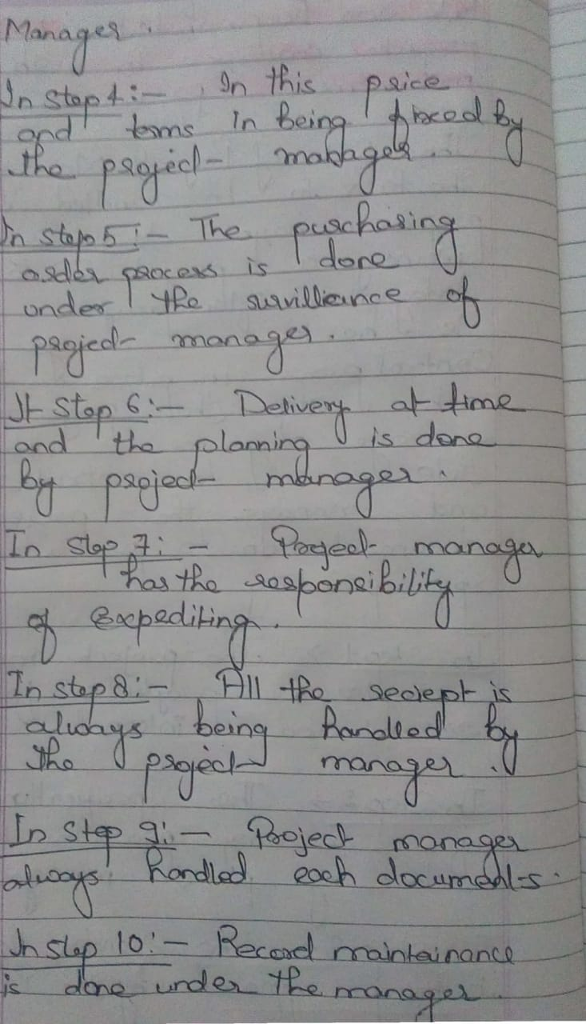 Manager.
In step 4:- In this price
and terms in being fixed by
the project manager.
In step 5:- The purchasing
order process is done
under the survilliance of
project manager.
It Step 6:- Delivery at time
and the planning is done
by project manager.
In step 7:- Project manager
has the responsibility
of expediting.
In step 8:- All the reciept is
always being handled by
the project manager.
In step 9:- Project manager
always handled each documents.
In step 10:- Record maintainance
is done under the manager.